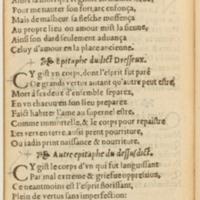 Pour me tanter son fort arc enfonça,
Mais de malheur sa flesche m'offença
Au propre lieu ou amour mist la sienne,
Ainsi son dard seulement aduança
Celuy d'amour en la place ancienne.
Epitaphe dudict Dresseux.
CY gist vn corps, dont l'esprit fut paré
De grande vertus autant qu'autre peut estre,
Mort à ses deux d'ensemble separez,
En vn chacun en son lieu preparez
Faict habiter l'ame au supernel estre,
Comme immortelle, & le corps pour repaistre
Les vers en terre ainsi prent pourriture,
Ou iadis print naissance & nourriture.
Autre epitaphe du dessusdict.
CY gist le corps d'vn qui fut languissant
Par mal extreme & griefue oppression,
Ce neantmoins est l'esprit florissant,
Plein de vertus sans imperfection: